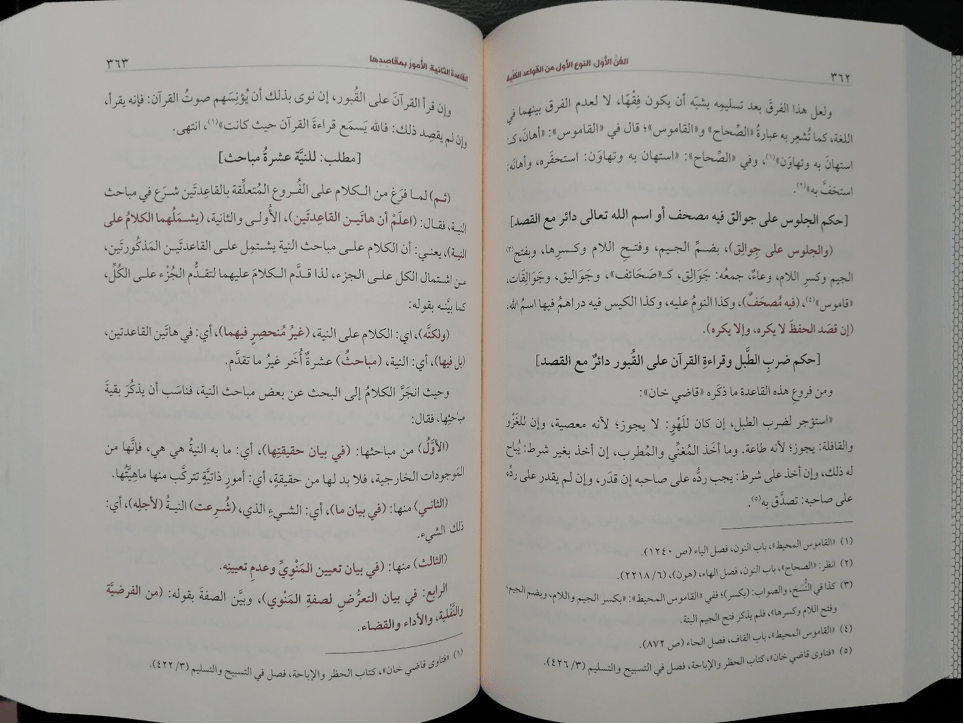 ٣٦٢
الفَنّ الأوَّل: النوع الأول من القواعد الكليّة
ولعل هذا الفرقَ بعد تسليمِه يشبَه أن يكون فِقْهًا، لا لعدم الفرق بينهما في
اللغة، كما تُشعِر به عبارةُ «الصِّحاح» و«القاموس»؛ قال في «القاموس»: «أهانَ، كـ:
استهانَ به وتهاوَن»(١)، وفي «الصِّحاح»: «استهان به وتهاوَن: استحقَره، وأهانَه:
استخفَّ به»(٢).
[حكم الجلوس على جوالق فيه مصحف أو اسم الله تعالى دائر مع القصد]
(والجلوس على جوالِق)، بضمِّ الجيم، وفتحِ اللام وكسرِها، وبفتح(٣)
الجيم وكسرِ اللام، وعاءٌ، جمعُه: جَوَالِق، كـ«صَحَائف»، وجَوَاليق، وجَوَالِقَات،
«قاموس»(٤)، (فيه مُصحَفٌ)، وكذا النومُ عليه، وكذا الكيس فيه دراهمُ فيها اسمُ الله،
(إن قصَد الحفظَ لا يكره، وإلا يكره).
[حكم ضربِ الطَّبل وقراءةِ القرآن على القُبور دائرٌ مع القصد]
ومن فروعِ هذه القاعدة ما ذكَره «قاضي خان»:
«استؤجر لضرب الطبل، إن كان للَهْوِ: لا يجوز؛ لأنه معصية، وإن للغَزْوِ
والقافلة: يجوز؛ لأنه طاعة. وما أخَذ المُغنِّي والمُطرب، إن أخذ بغير شرط: يُباح
له ذلك، وإن أخذ على شرط: يجب ردُّه على صاحبه إن قدَر، وإن لم يقدر على ردِّه
على صاحبه: تصدَّق به»(٥).
(١) «القاموس المحيط»، باب النون، فصل الهاء (ص ١٢٤٠).
(٢) انظر: «الصحاح»، باب النون، فصل الهاء، (هون)، (٦/ ٢٢١٨).
(٣) كذا في النُّسَخ، والصواب: (بكسر)؛ ففي «القاموس المحيط»: «بكسر الجيم واللام، وبضم الجيم
وفتح اللام وكسرها»، فلم يذكر فتح الجيم البتة.
(٤) «القاموس المحيط»، باب القاف، فصل الحاء (ص ٨٧٢).
(٥) «فتاوى قاضي خان»، كتاب الحظر والإباحة، فصل في التسبيح والتسليم (٣/ ٤٢٦).
القاعدة الثانية: الأمورُ بمقاصدها
٣٦٣
وإن قرأ القرآنَ على القُبور، إن نوى بذلك أن يُؤنِسَهم صوتُ القرآن: فإنه يقرأ،
وإن لم يقصِد ذلك: فالله يَسمَع قراءةَ القرآن حيث كانت»(١)، انتهى.
[مطلب: للنيَّة عشرةُ مباحث]
(ثم) لما فرَغ من الكلام على الفُروع المُتعلِّقة بالقاعدتَين شرَع في مباحث
النية، فقال: (اعلَمْ أن هاتَين القاعدتَين)، الأُولى والثانية، (يشمَلُهما الكلامُ على
النية)، يعني: أن الكلام على مباحث النية يشتمِل على القاعدتَين المَذكُورتَين،
من اشتمال الكل على الجزء، لذا قدَّم الكلامَ عليهما لتقدُّم الجُزْء على الكُلِّ،
كما بيَّنه بقوله:
(ولكنَّه)، أي: الكلام على النية، (غيرُ مُنحصِرٍ فيهما)، أي: في هاتَين القاعدتين،
(بل فيها)، أي: النية، (مباحثُ) عشرةٌ أُخَر غيرُ ما تقدَّم.
وحيث انجَرَّ الكلامُ إلى البحث عن بعض مباحث النية، فناسَب أن يذكُرَ بقيةَ
مباحثِها، فقال:
(الأوَّلُ) من مباحثها: (في بيان حقيقتِها)، أي: ما به النيةُ هي هي، فإنَّها من
المَوجودات الخارجية، فلا بد لها من حقيقةٍ، أي: أمورٍ ذاتيَّةٍ تتركَّب منها ماهيَّتُها.
(الثاني) منها: (في بيان ما)، أي: الشيءِ الذي، (شُرعت) النيةُ (لأجلِه)، أي:
ذلك الشيءِ.
(الثالث) منها: (في بيان تعيين المَنْوِيِّ وعدمِ تعيينِه.
الرابع: في بيان التعرُّضِ لصفةِ المَنْوي)، وبيَّن الصفةَ بقوله: (من الفرضيَّة
والنَّفْلية، والأداء والقضاء.
(١) «فتاوى قاضي خان»، كتاب الحظر والإباحة، فصل في التسبيح والتسليم (٣/ ٤٢٢).